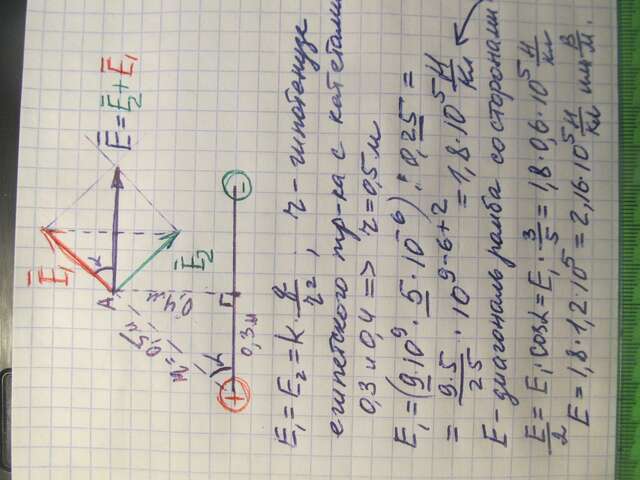 Ē₁
Ē = Ē₂ + Ē₁
α
A
Ē₂
r = 0,5 м
0,4 м
α
0,3 м
+
−
E₁ = E₂ = k · q/r², r – гипотенузе
египетского тр-ка с катетами
0,3 и 0,4 => r = 0,5 м
E₁ = (9·10⁹ · 5·10⁻⁶) : 0,25 =
= 9·5/25 · 10⁹⁻⁶⁺² = 1,8·10⁵ Н/Кл
E – диагональ ромба со сторонами
E/2 = E₁·cosα = E₁ · 3/5 = 1,8·0,6·10⁵ Н/Кл
E = 1,8·1,2·10⁵ = 2,16·10⁵ Н/Кл или В/м.